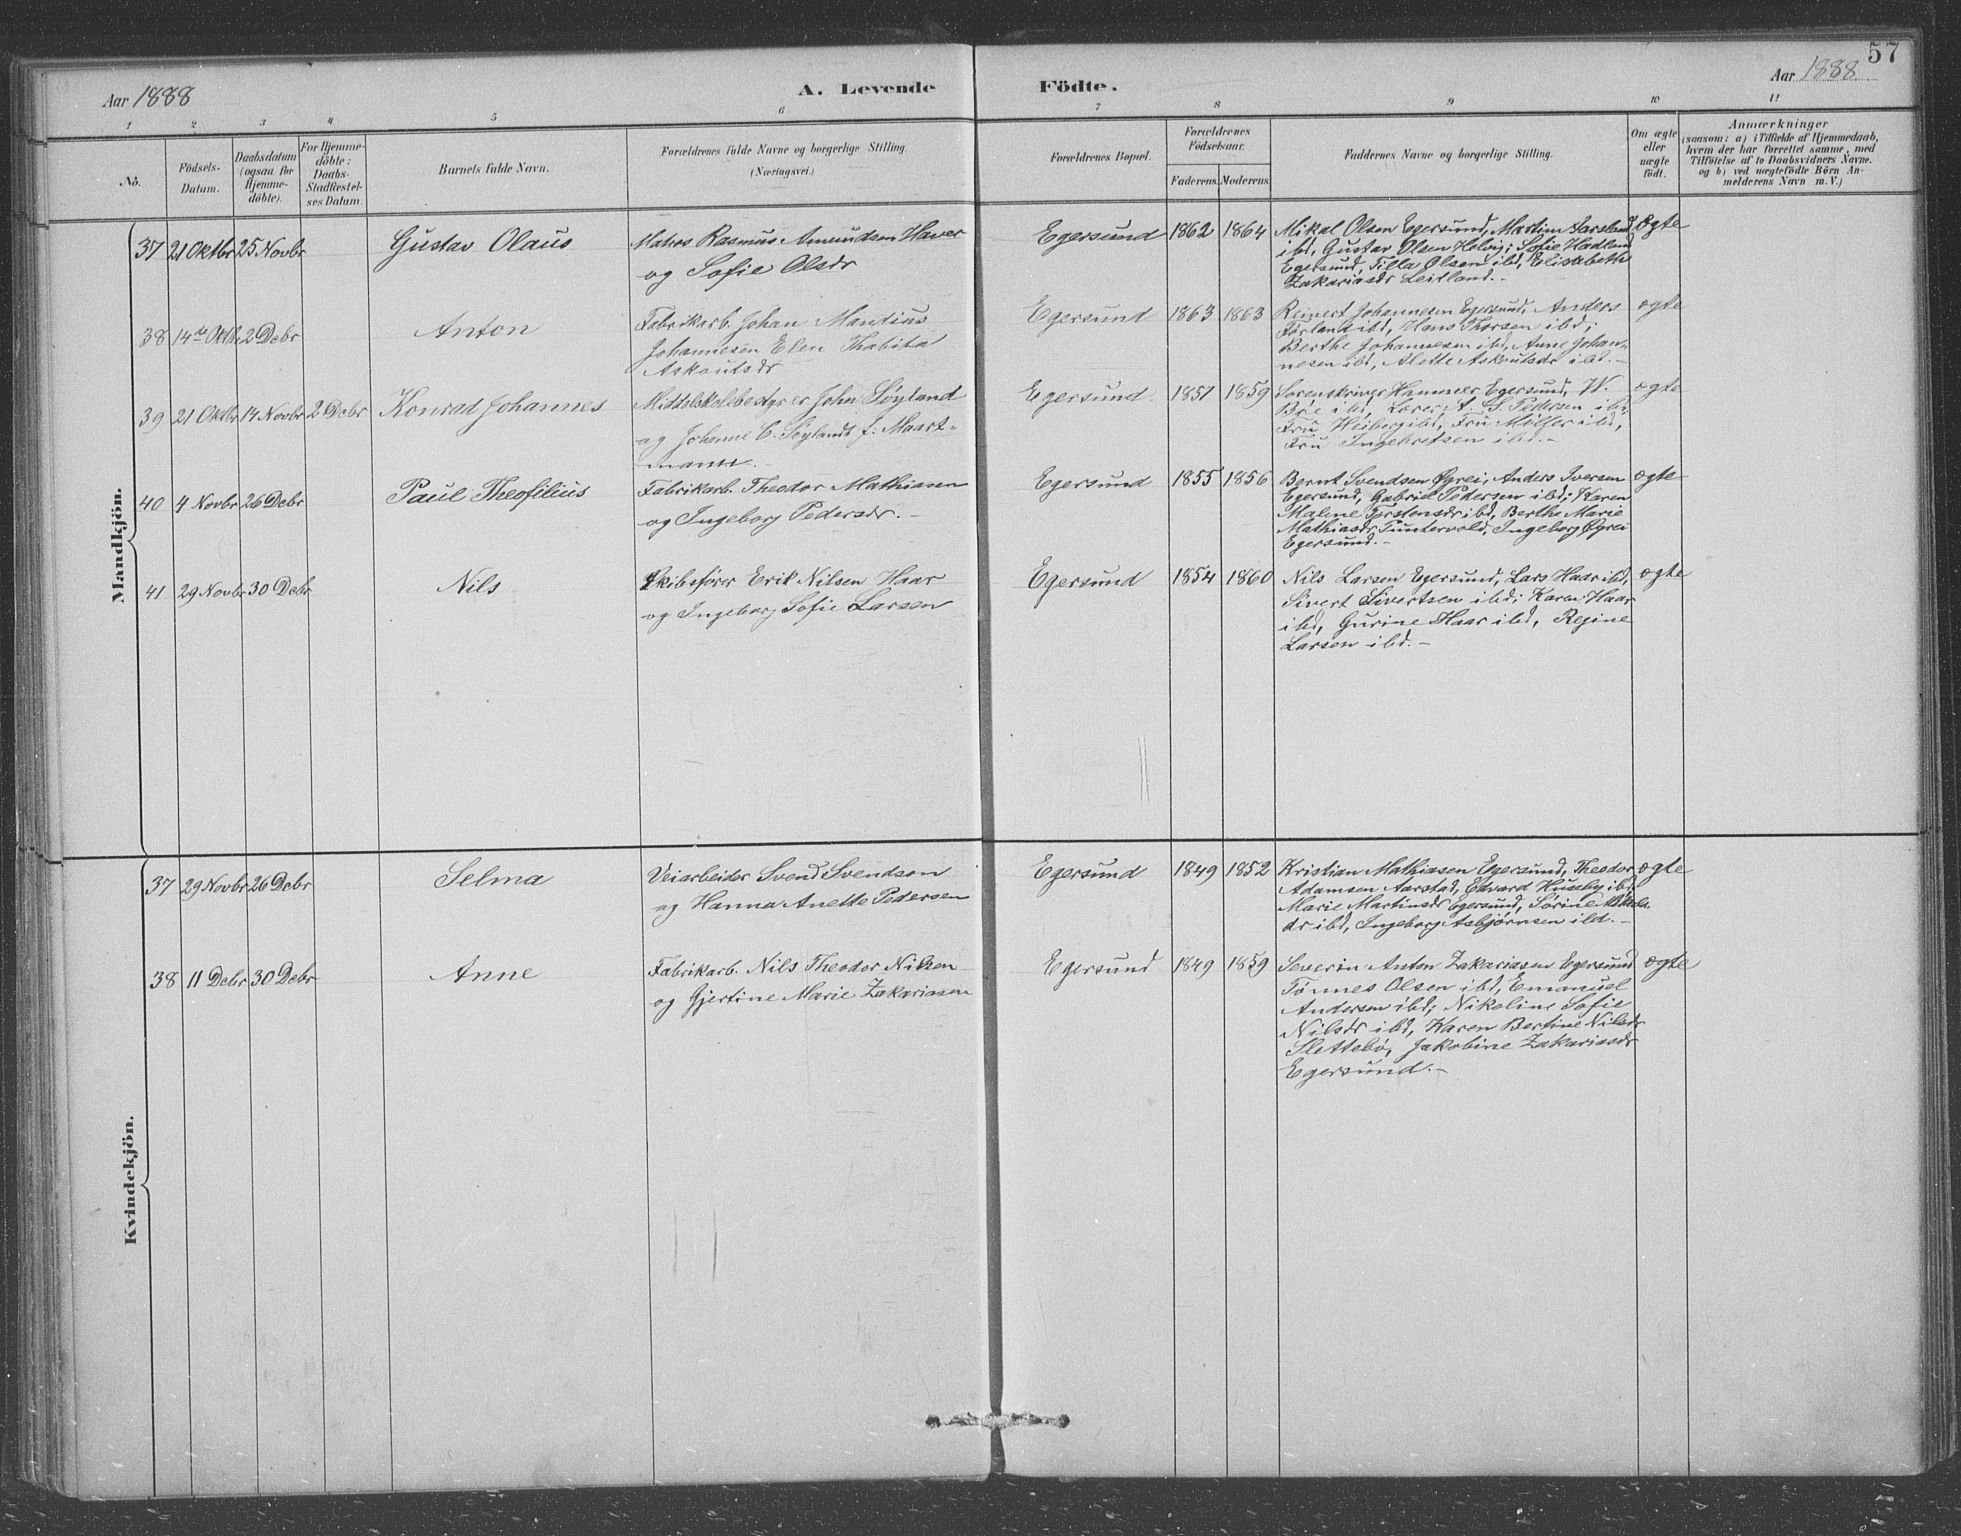 57
Aar 1888
A. Levende
Födte.
Aar 1888
1 2 3 4 5 6 7 8 9 10 11
No.
Födsels-
Datum.
Daabsdatum
(ogsaa for
Hjemme-
döbte).
For Hjemme-
döbte:
Daabs-
Stadfæstel-
ses Datum.
Barnets fulde Navn.
Forældrenes fulde Navne og borgerlige Stilling.
(Næringsvei.)
Forældrenes Bopæl.
Forældrenes
Födselsaar.
Faderens.
Moderens.
Faddernes Navne og borgerlige Stilling.
Om ægte
eller
uægte
födt.
Anmærkninger
(saasom: a) i Tilfælde af Hjemmedaab,
hvem der har forrettet samme, med
Tilföielse af to Daabsvidners Navne.
og b) ved uægtefödte Börn An-
melderens Navn m. V.)
Mandkjön.
37 21 Oktbr 25 Novbr
Gustav Olaus
Matros Rasmus Amundsen Haver
og Sofie Olsdr
Egersund 1862 1864
Mikal Olsen Egersund, Martin
ibd, Gustav Olsen Helvig; Sofie Hadland
Egersund, Tilla Olsen ibd, Elisabeth
Zakariasdr Leitland.-
ægte
38 14de Oktbr 2 Debr
Anton
Fabrikarb. Johan Mandius
Johannesen Elen Thabita
Askoutsdr
Egersund 1863 1863
Reinert Johannesen Egersund, Anders
Førland ibd, Hans Thorsen ibd;
Berthe Johannesen ibd, Anne Johan-
nesen ibd, Alette Askoutsdr ibd.-
ægte
39 21 Oktbr 14 Novbr 2 Debr
Konrad Johannes
Middelskolebestyrer John Søyland
og Johanne C. Søyland f. Maart-
mann.-
Egersund 1851 1859
Sorenskriver Hammer Egersund, W.
Brie ibd, Lærer A. G. Pedersen ibd;
Fru Weiberg ibd, Fru Møller ibd,
Fru Ingebretsen ibd.-
ægte
40 4 Novbr 26 Debr
Paul Theofilius
Fabrikarb. Theodor Mathiasen
og Ingeborg Pedersdr.-
Egersund 1855 1856
Bernt Svendsen Øyrei, Anders Iversen
Egersund, Gabriel Pedersen ibd; Karen
Malene Torstensdr ibd, Berthe Marie
Mathiasdr Puntervold, Ingeborg Øyrei
Egersund.-
ægte
41 29 Novbr 30 Debr
Nils
Skibsfører Erik Nilsen Haar
og Ingeborg Sofie Larsen
Egersund 1854 1860
Nils Larsen Egersund, Lars Haar ibd,
Sivert Sivertsen ibd; Karen Haar
ibd, Gurine Haar ibd, Regine
Larsen ibd.-
ægte
Kvindekjön.
37 29 Novbr 26 Debr
Selma
Veiarbeider Svend Svendsen
og Hanna Anette Pedersen
Egersund 1849 1852
Kristian Mathiasen Egersund, Theodor
Adamsen Aarstad, Edvard Huseby ibd;
Marie Martinsdr Egersund, Sørine
dr ibd, Ingeborg Asbjørnsen ibd.-
ægte
38 11 Debr 30 Debr
Anne
Fabrikarb. Nils Theodor Nilsen
og Gjertine Marie Zakariasen
Egersund 1849 1859
Severin Anton Zakariasen Egersund
Tønnes Olsen ibd, Emanuel
Andersen ibd; Nikoline Sofie
Nilsdr ibd, Karen Bertine Nilsdr
Slettebø, Jakobine Zakariasdr
Egersund.-
ægte